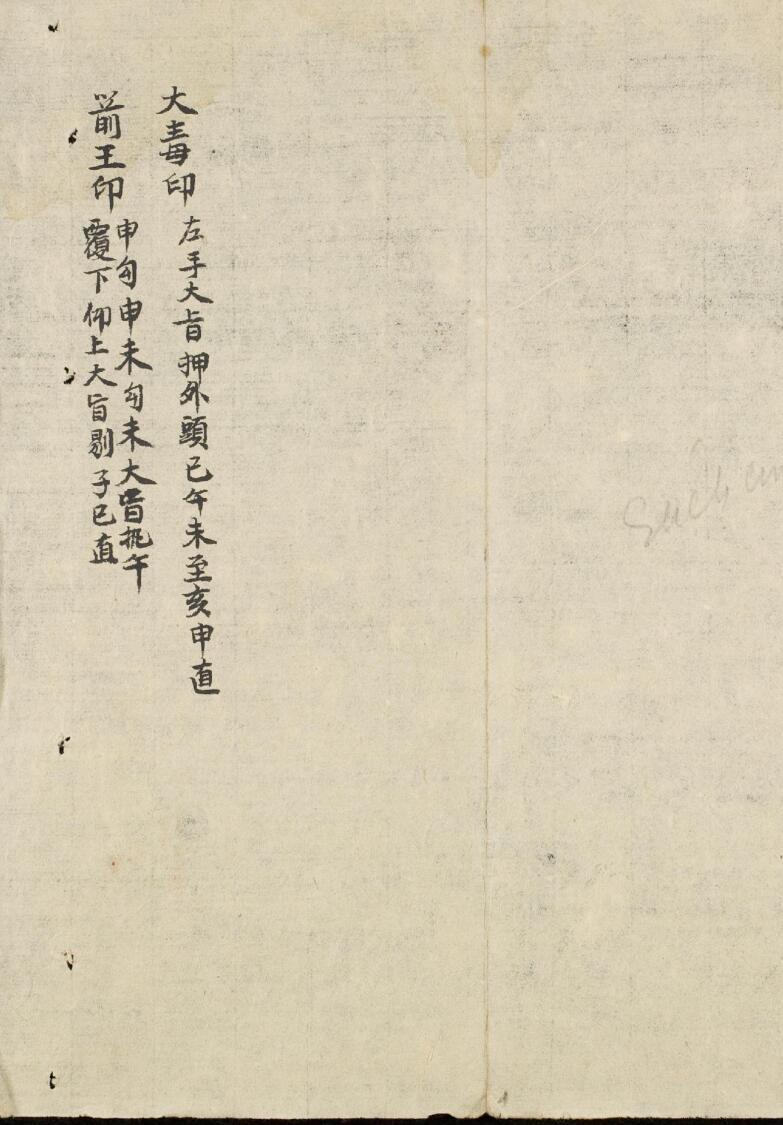 大毒印 左手大旨押外頭巳午未至亥申直
箭王印 申勾申未勾未大旨挑午
覆下仰上大旨剔子巳直